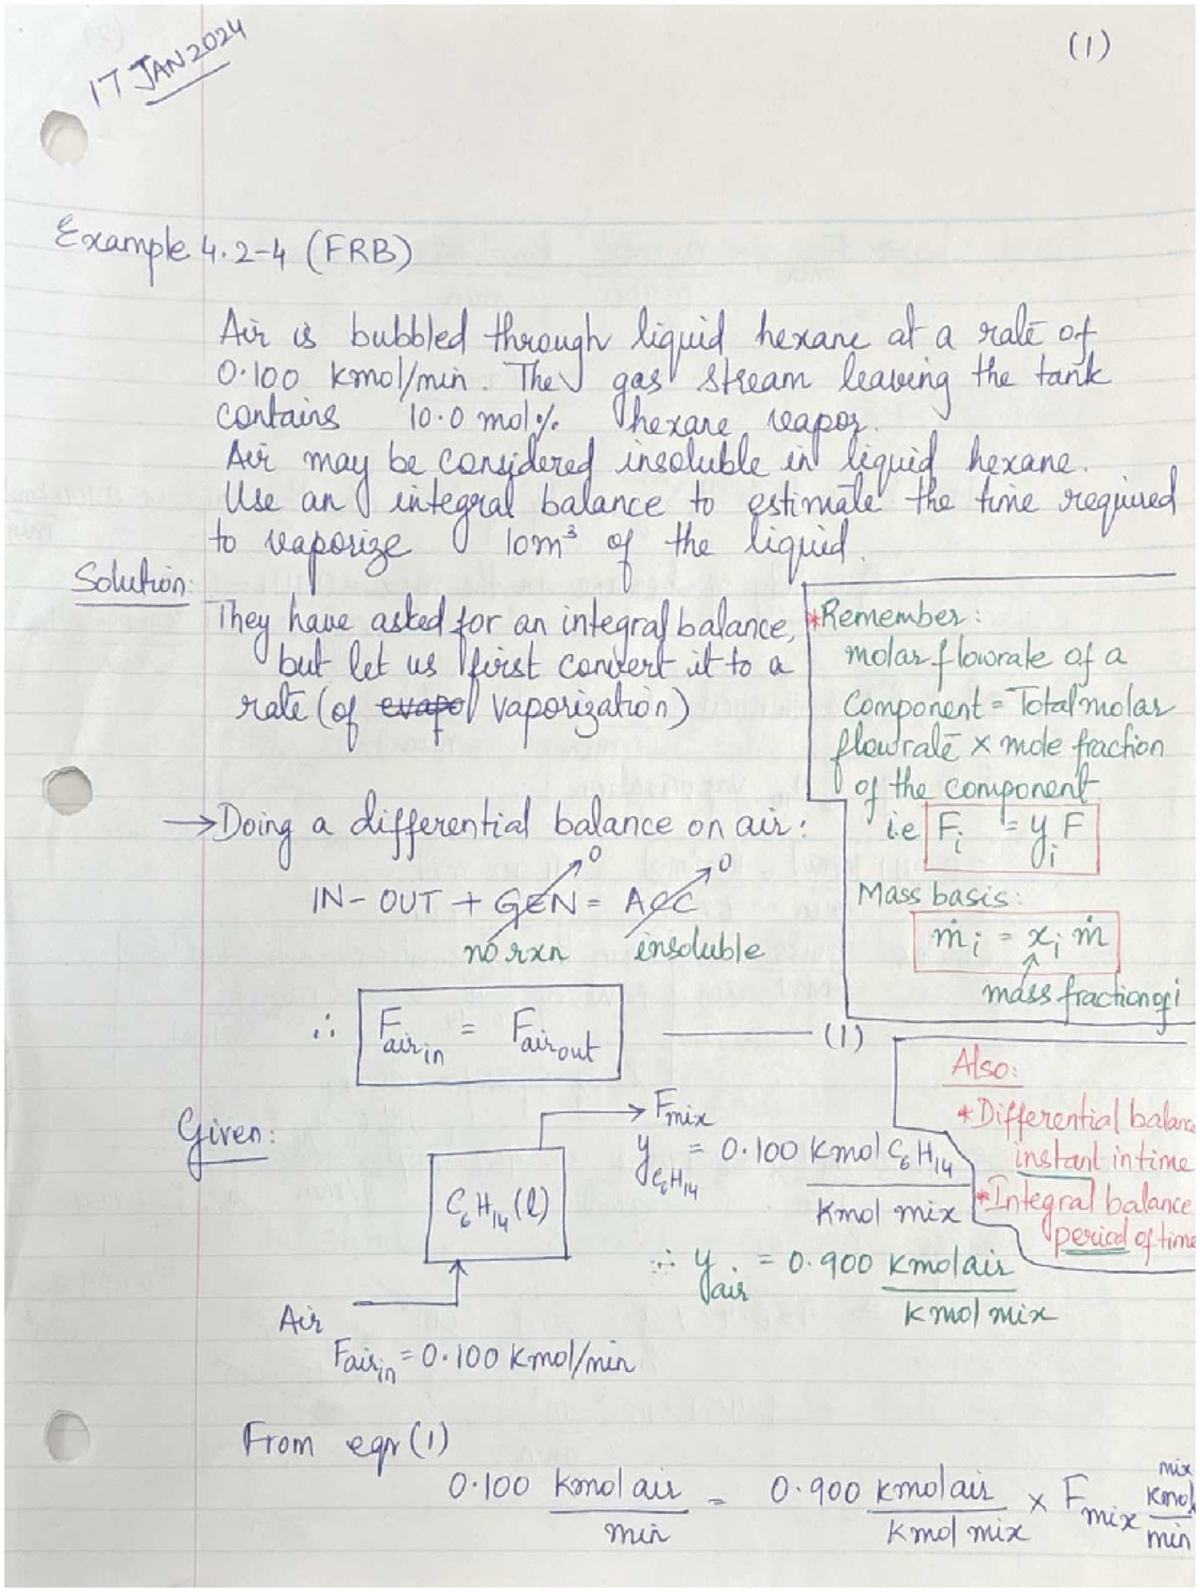 17 JAN 2024
(1)
Example 4.2-4 (FRB)
Air is bubbled through liquid hexane at a rate of
0.100 kmol/min. The gas stream leaving the tank
contains 10.0 mol% hexane vapor.
Air may be considered insoluble in liquid hexane.
Use an integral balance to estimate the time required
to vaporize 10m³ of the liquid.
Solution:
They have asked for an integral balance,
but let us first convert it to a
rate (of evapo vaporization)
*Remember:
molar flowrate of a
Component = Total molar
flowrate × mole fraction
of the component
i.e F_i = y_i F
Mass basis:
ṁ_i = x_i ṁ
mass fraction of i
→ Doing a differential balance on air:
IN - OUT + GEN = ACC
0 0
no rxn insoluble
∴ F_air in = F_air out (1)
Also:
*Differential balanc
instant in time
*Integral balance
period of time
Given:
F_mix
y_C₆H₁₄ = 0.100 kmol C₆H₁₄
kmol mix
C₆H₁₄(l)
∴ y_air = 0.900 kmol air
kmol mix
Air
F_air in = 0.100 kmol/min
From eqn (1)
0.100 kmol air / min = 0.900 kmol air / kmol mix × F_mix mix kmol / min